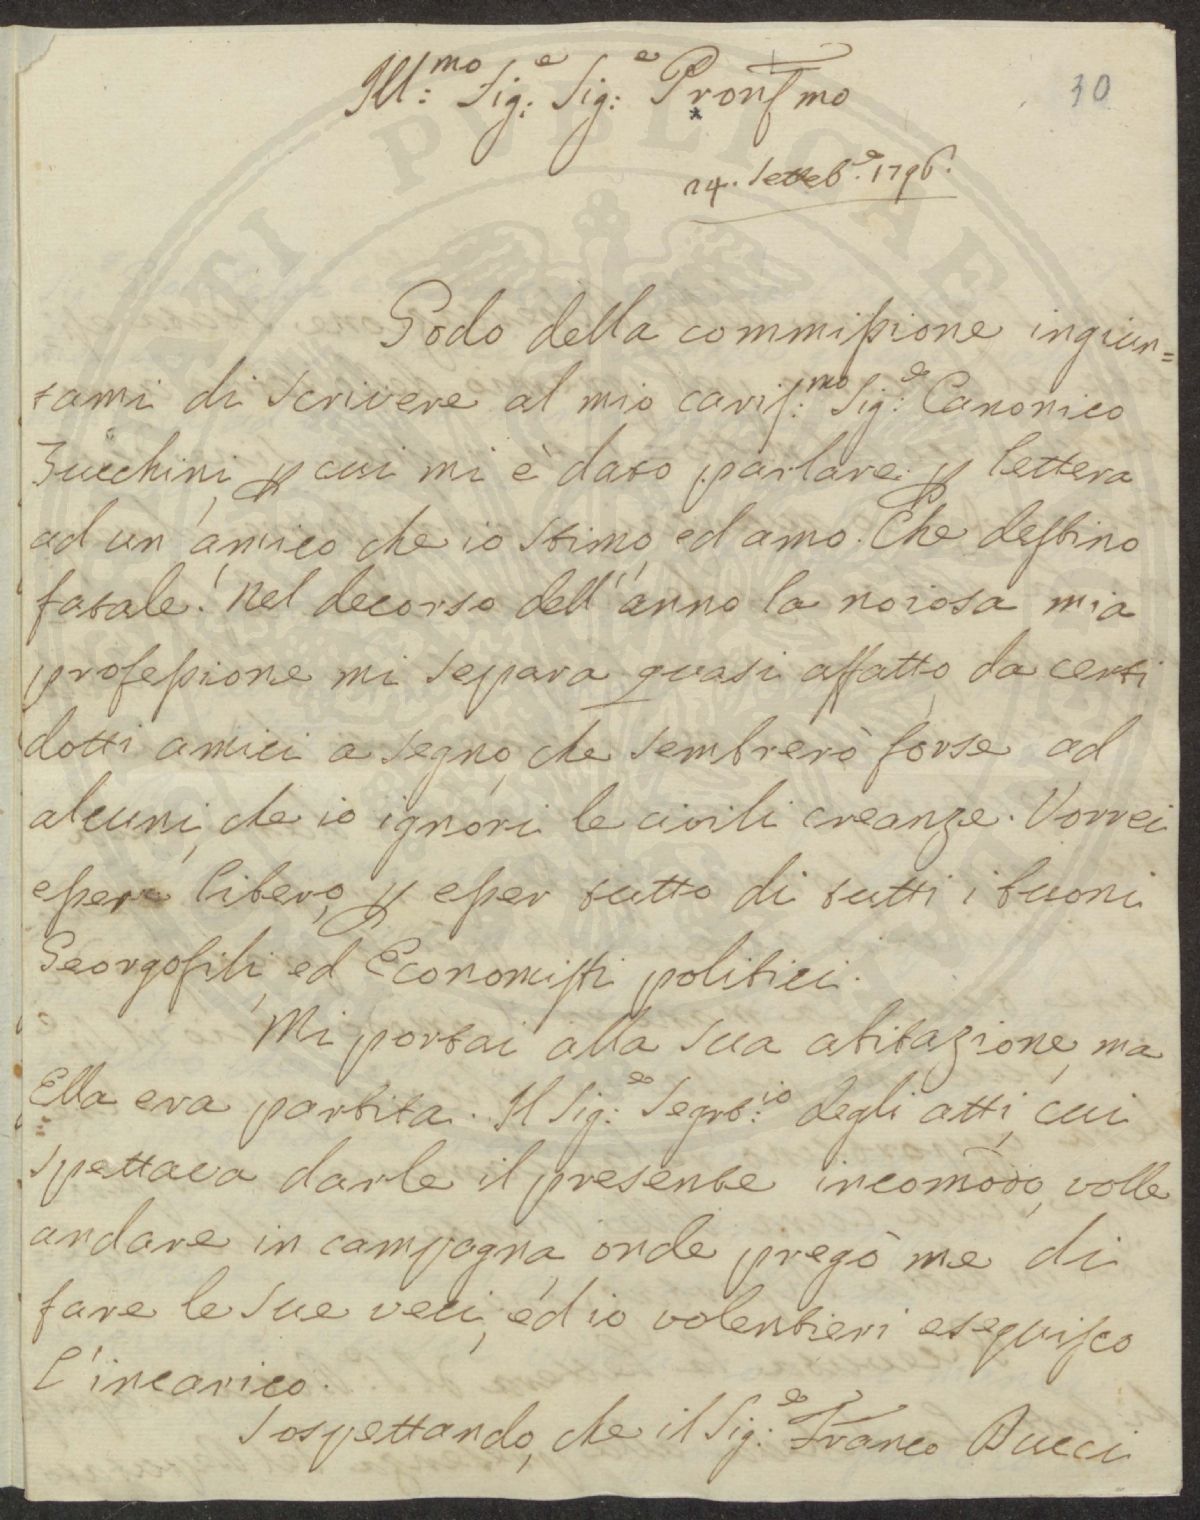 Ill:mo Sig:e Sig:e Pronſmo
30
24. Setteb:e 1796.
Godo della commiſsione ingiun=
tami di scrivere al mio cariſ:mo Sig:e Canonico
Zucchini, p cui mi è dato parlare p lettera
ad un'amico che io stimo, ed amo. Che deſtino
fatale! Nel decorso dell'anno la noiosa mia
profeſsione mi separa quasi affatto da certi
dotti amici a segno, che sembrerò forse ad
alcuni, che io ignori le civili creanze. Vorrei
eſsere libero, p eſser tutto di tutti i buoni
Georgofili, ed Economiſti politici.
Mi portai alla sua abitazione, ma
Ella era partita. Il Sig:e Segrt:io degli atti, cui
spettava darle il presente incomodo, volle
andare in campagna, onde pregò me di
fare le sue veci, ed io volentieri eseguiſco
l'incarico.
Sospettando, che il Sig:e Franco Bucci